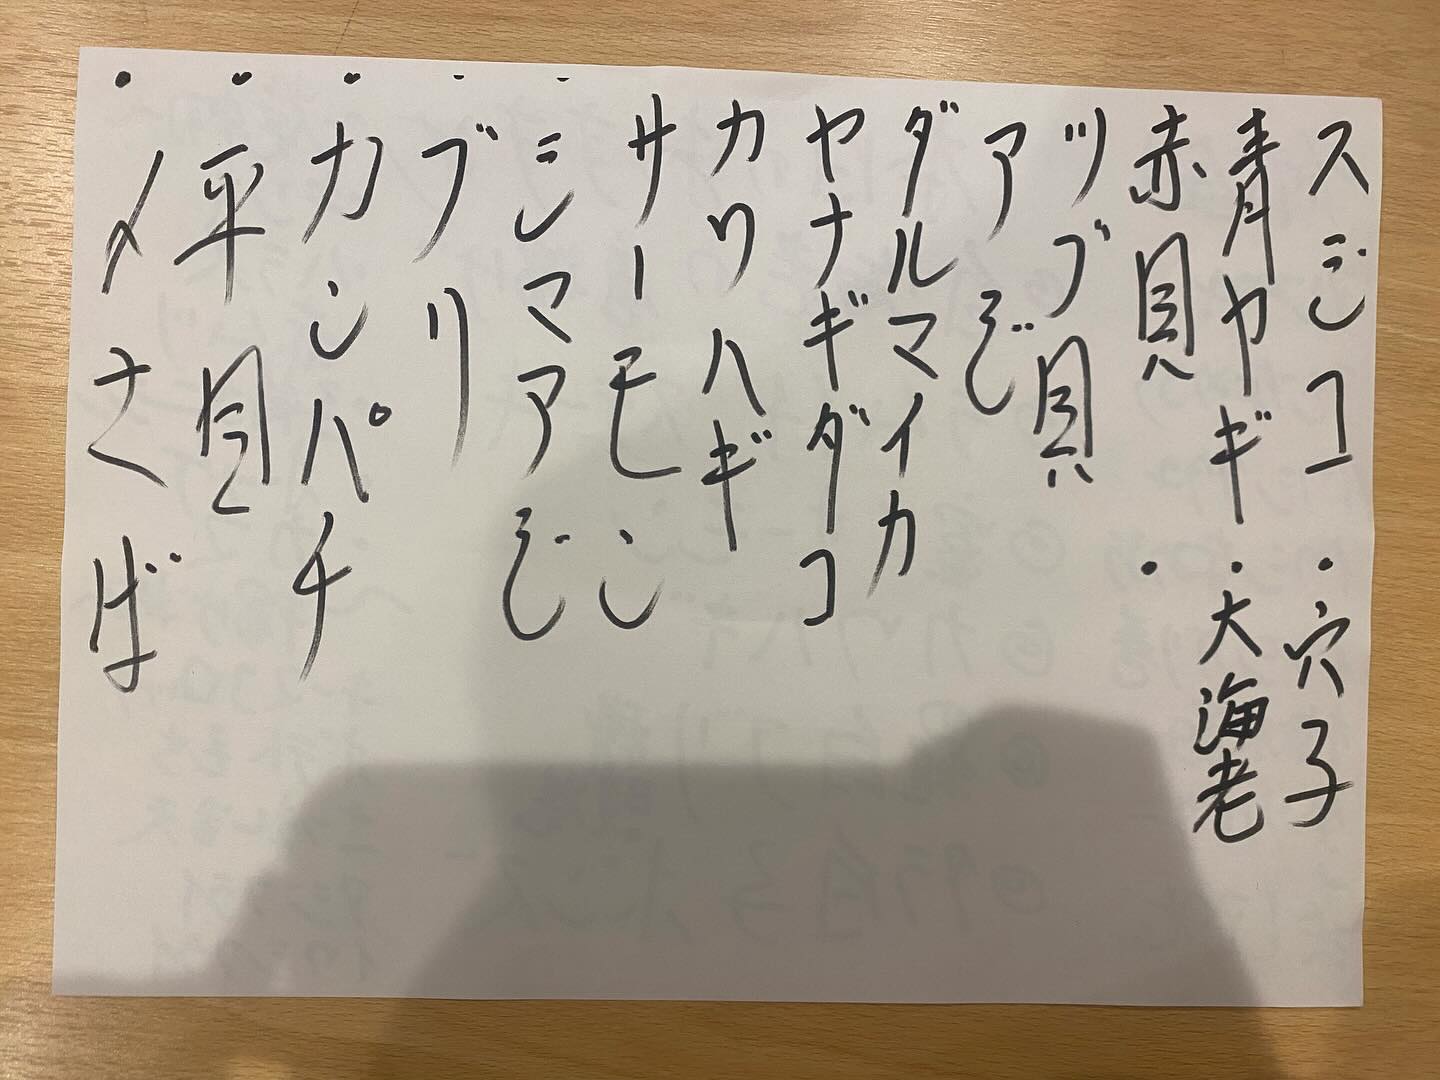 スジコ
青ヤギ
赤貝
ツブ貝
アジ
ダルマイカ
ヤナギダコ
カワハギ
サーモン
シマアジ
・ブリ
・カンパチ
・平目
・〆さば
・穴子
・大海老
・